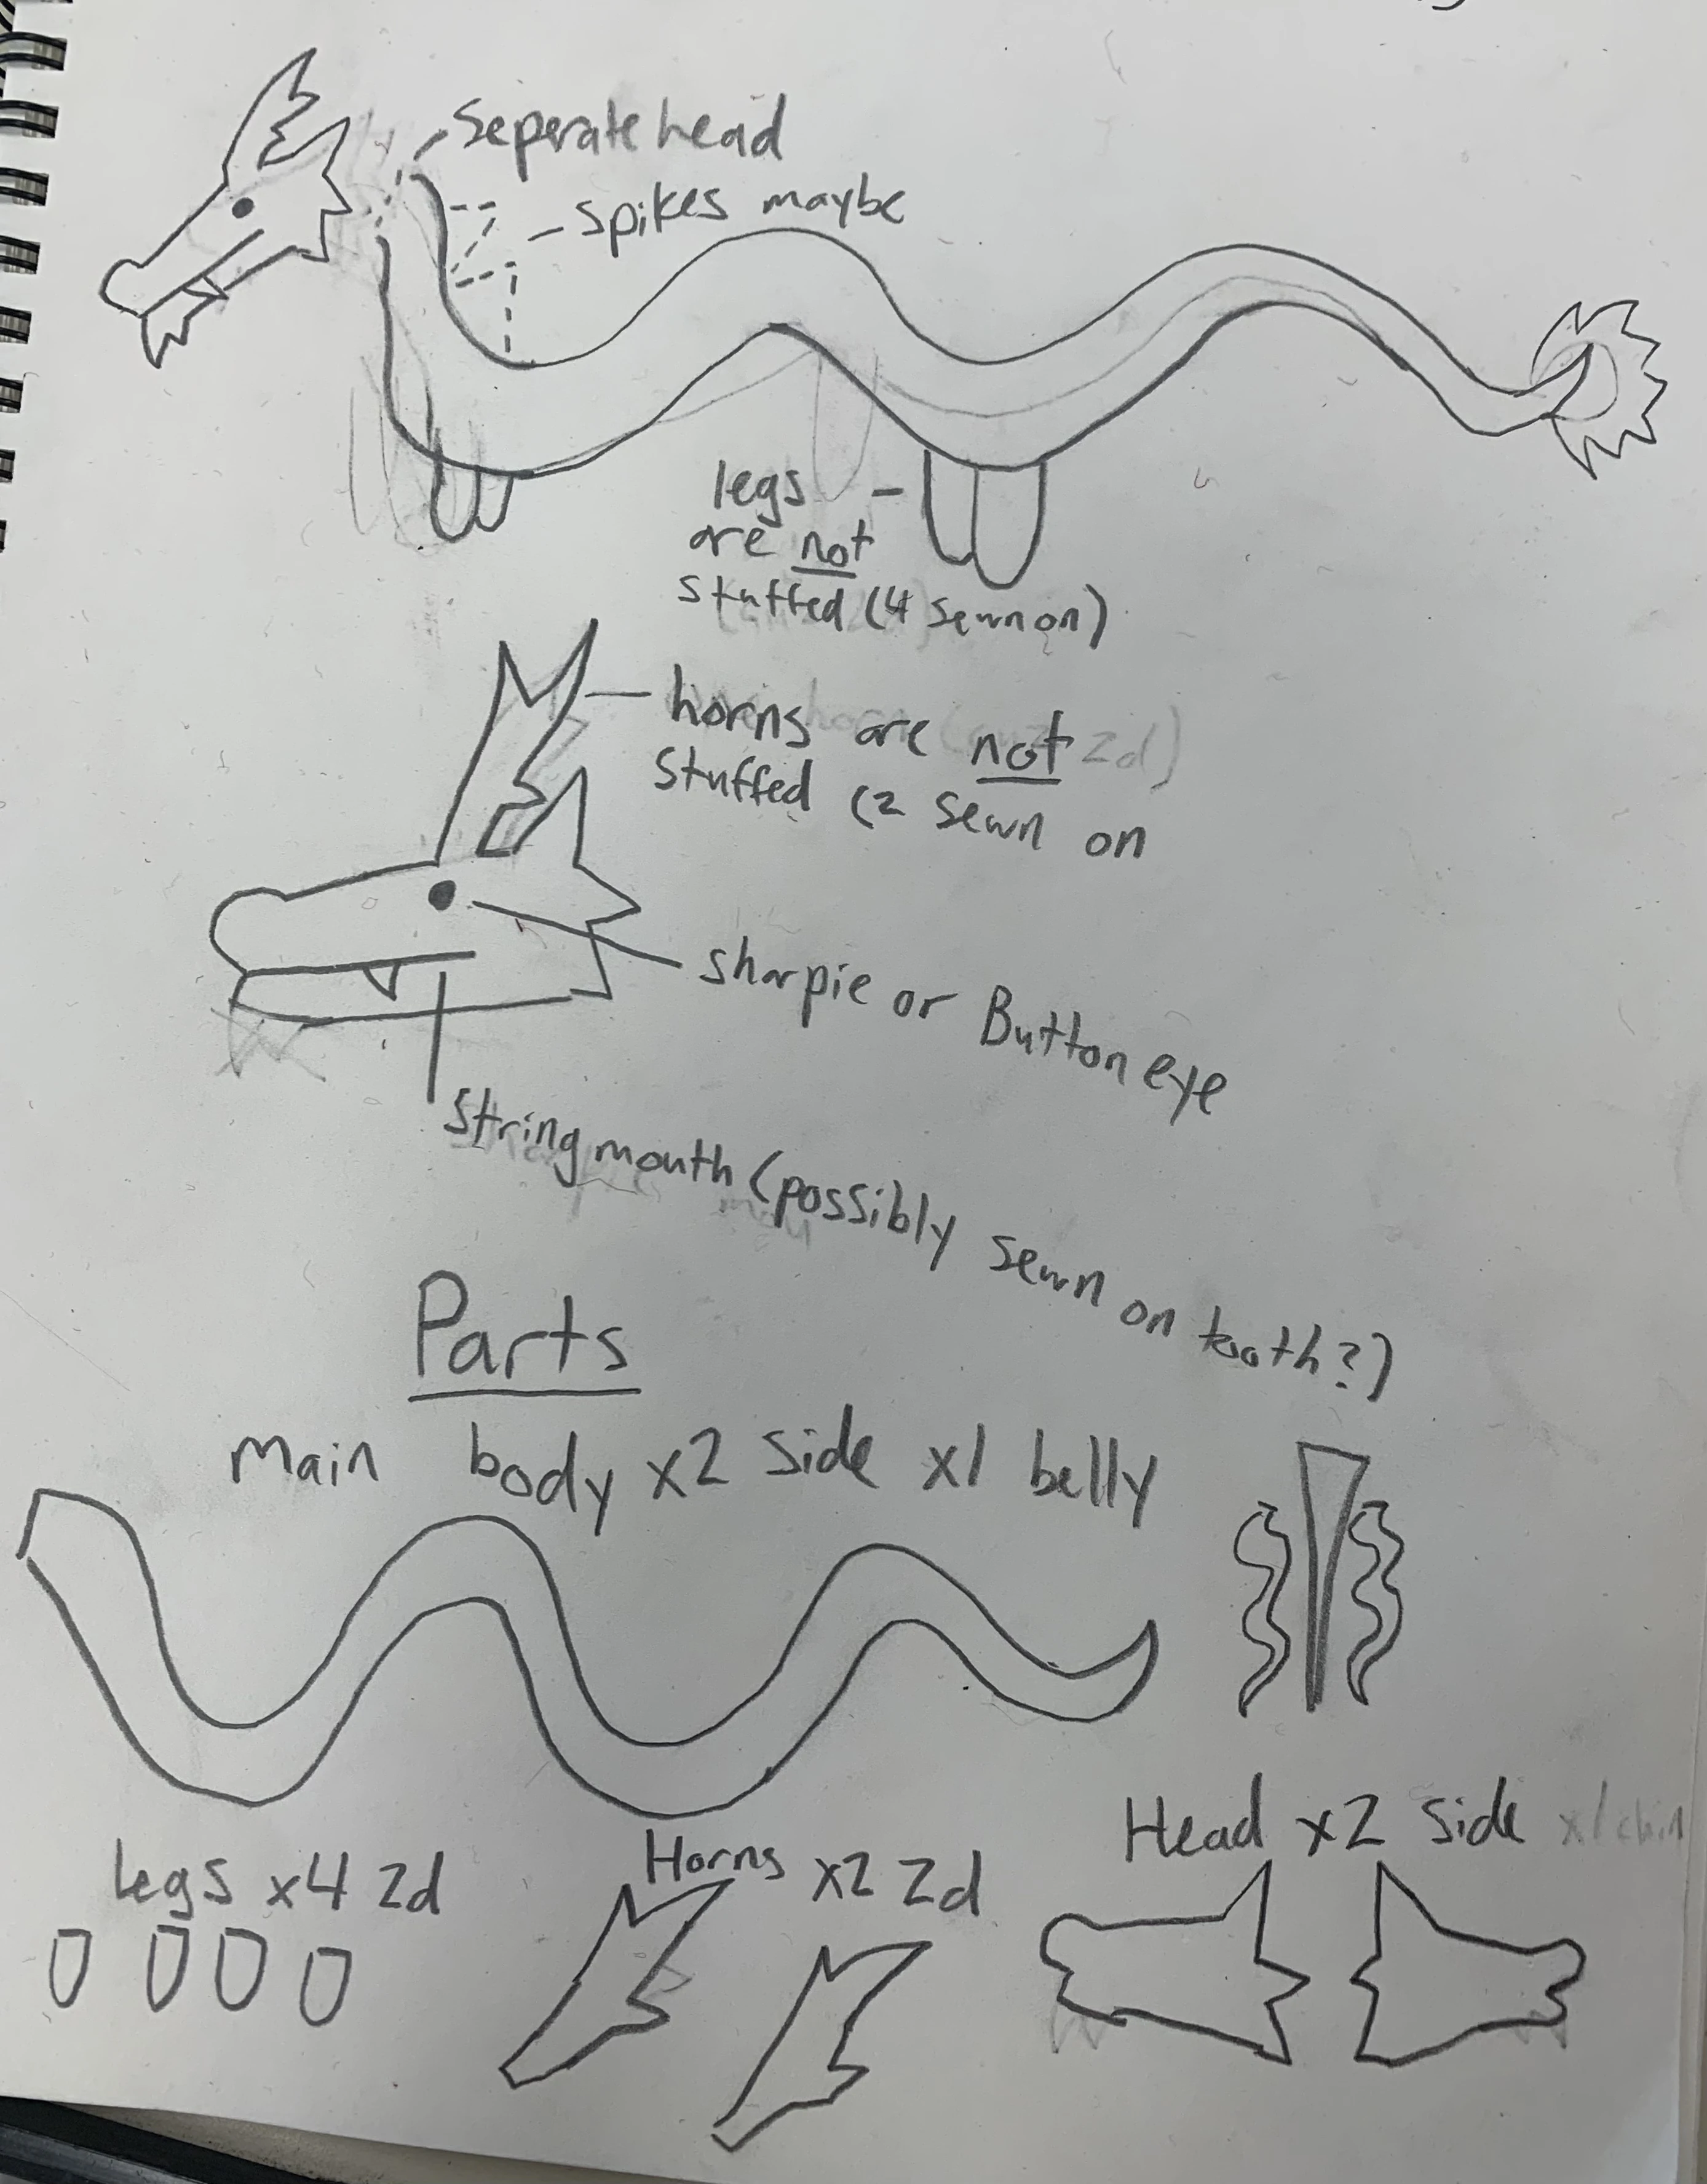 Seperate head
Spikes maybe
legs
are not
stuffed (4 sewn on)
horns are not 2d)
stuffed (2 sewn on
sharpie or Button eye
String mouth (possibly sewn on tooth?)
Parts
Main body x2 side x1 belly
Head x2 side x1 chin
legs x4 2d
Horns x2 2d